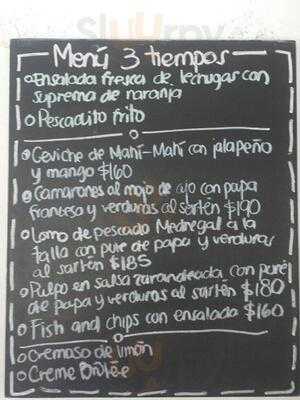 Menú 3 tiempos
o Ensalada fresca de lechugas con
suprema de naranja
o Pescadito frito
o Ceviche de Mahi-Mahi con jalapeño
y mango $160
o Camarones al mojo de ajo con papa
francesa y verduras al sartén $190
o Lomo de pescado Medregal a la
talla con pure de papa y verduras
al sartén $185
o Pulpo en salsa zarandeada con puré
de papa y verduras al sartén $180
o Fish and chips con ensalada $160
o Cremoso de limón
o Creme Brûlée